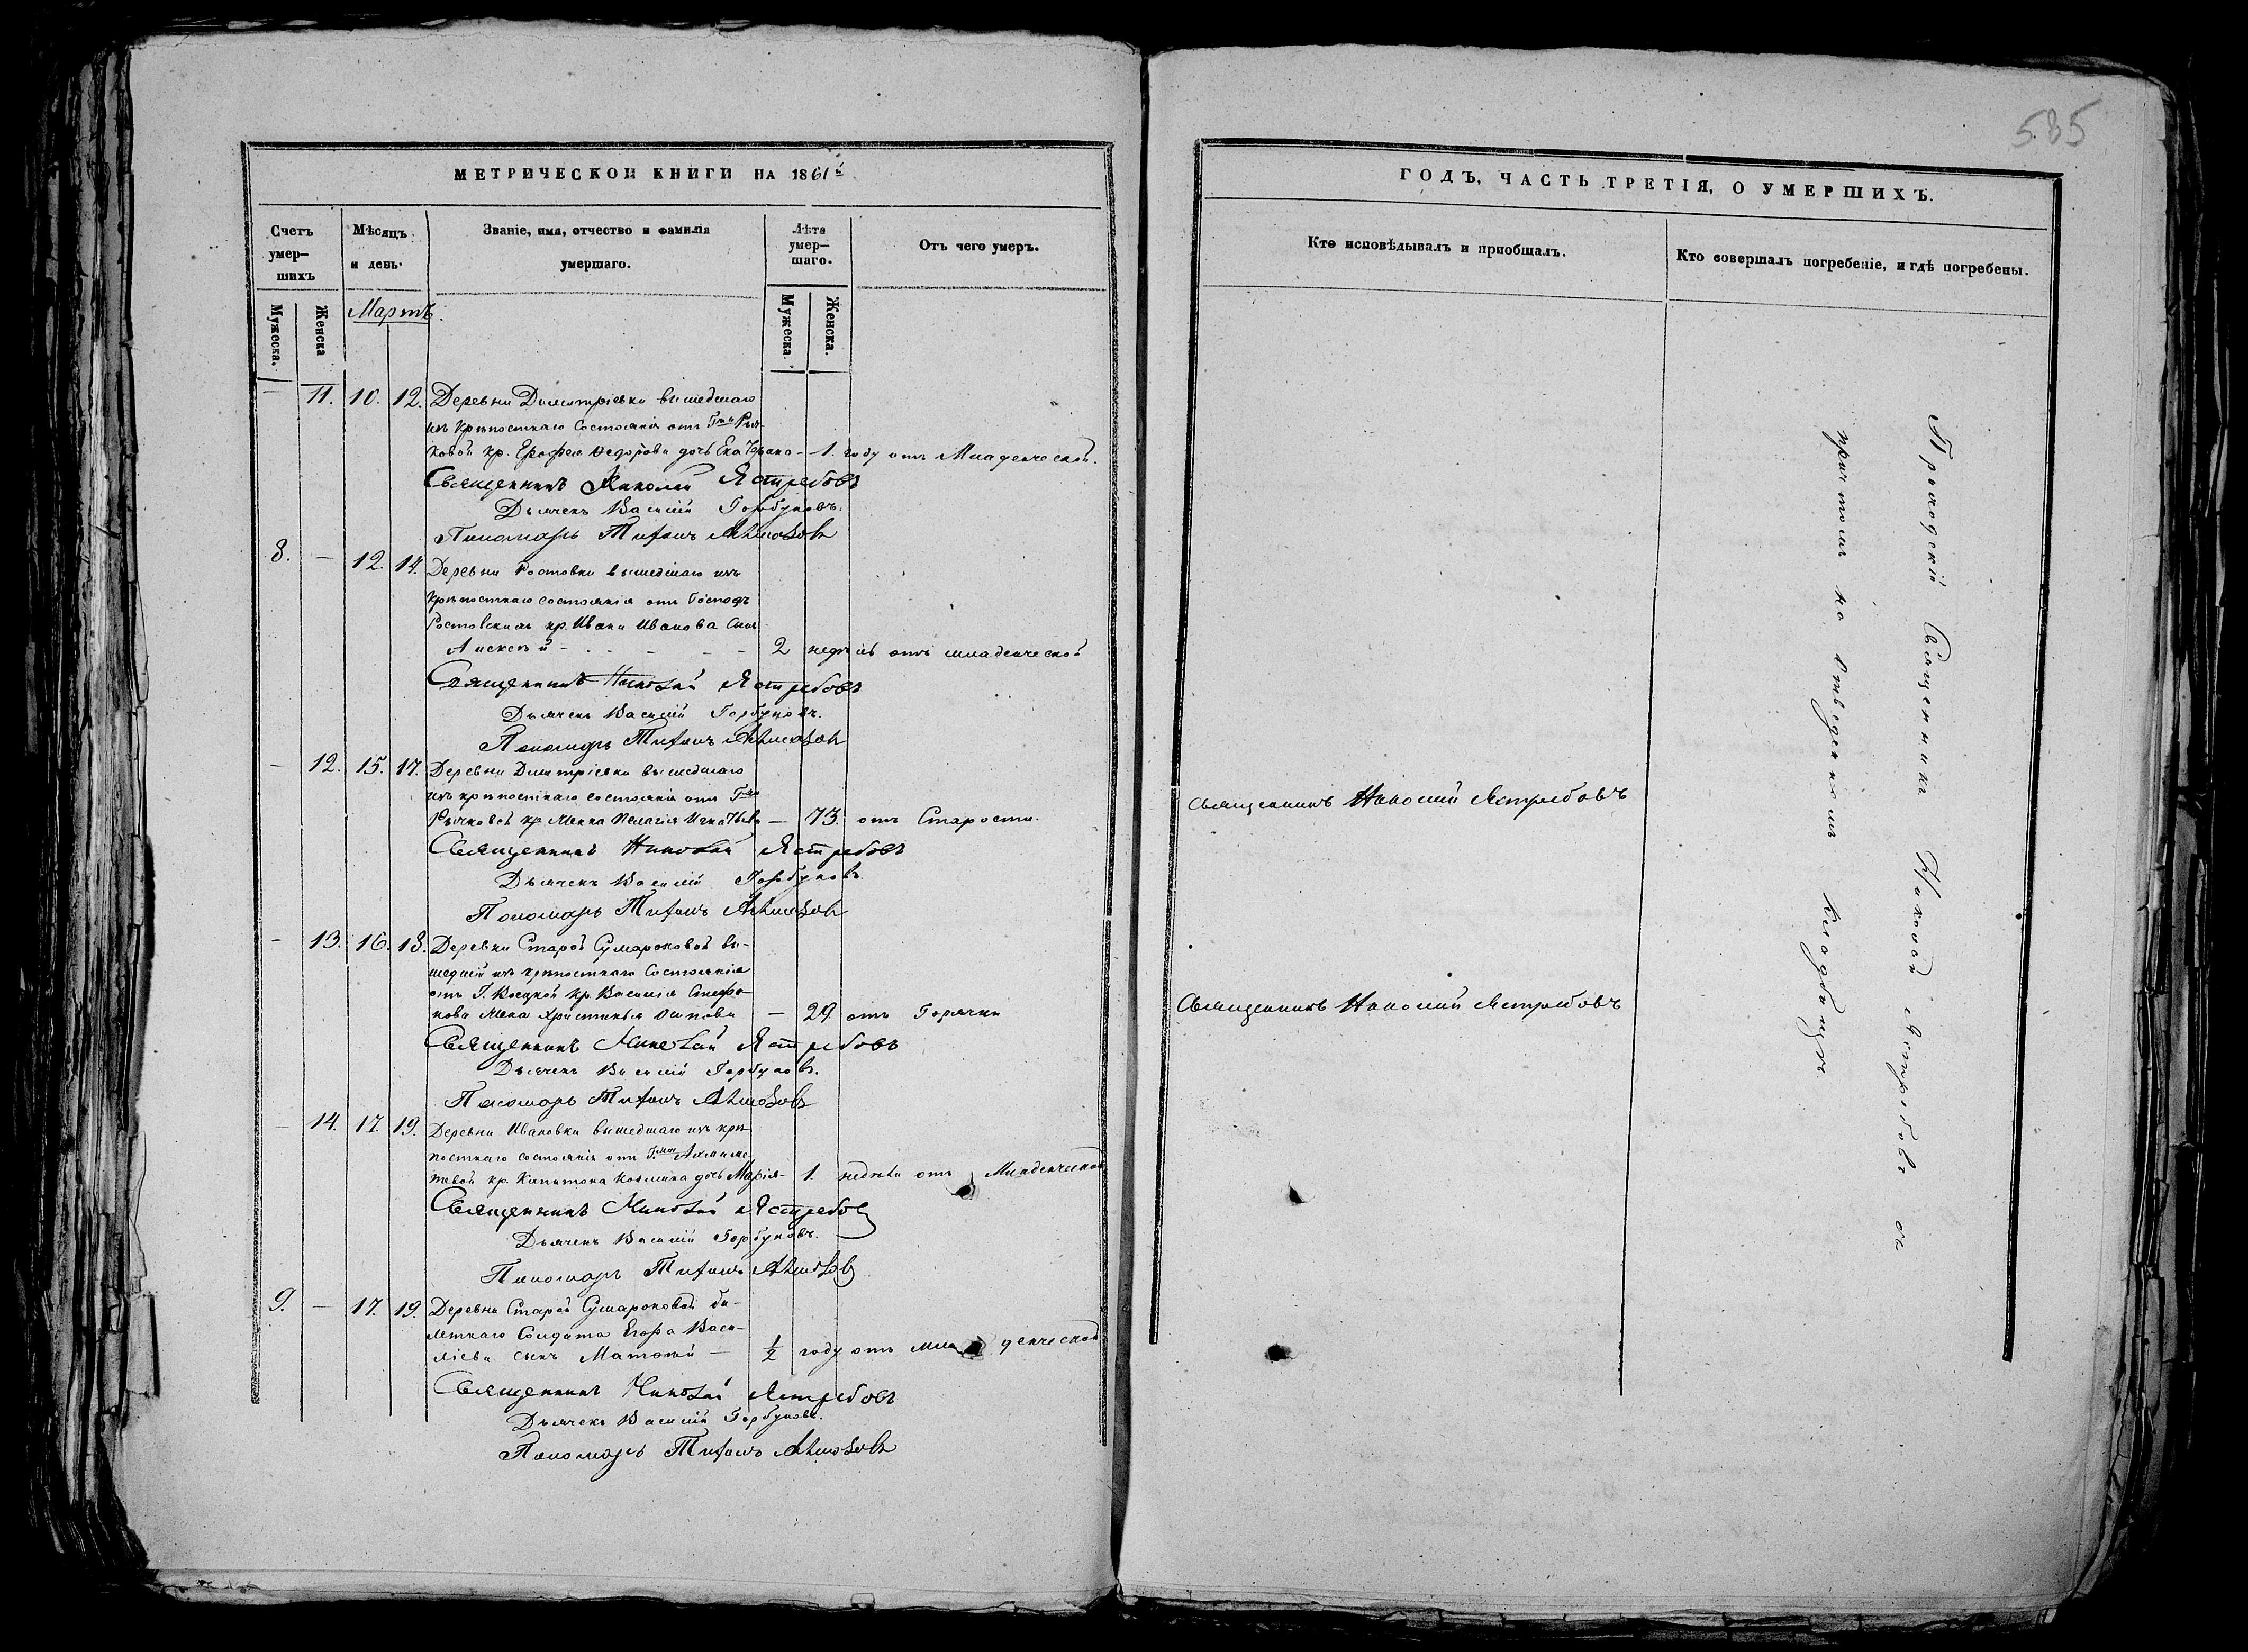 585
МЕТРИЧЕСКОЙ КНИГИ НА 1861й
Счетъ умер-шихъ
Мѣсяцъ и день.
Званіе, имя, отчество и фамилія умершаго.
Лѣта умер-шаго.
Отъ чего умеръ.
Мужеска.
Женска
Мартъ.
Мужеска.
Женска.
— 11. 10. 12. Деревни Димитріевки вышедшаго
изъ крѣпостнаго состоянія отъ Гжи Рыч-
ковой кр. Ерофея Ѳедорова дочь Екатерина — 1. году отъ Младенческой.
Священникъ Николай Ястребовъ
Дьячекъ Василій Горбуновъ.
Пономарь Тихонъ
8. — 12. 14. Деревни Ростовки вышедшаго изъ
крѣпостнаго состоянія отъ Господъ
Ростовскихъ кр. Ивана Иванова сынъ
Алексѣй - - - - - 2 недѣль отъ младенческой
Священникъ Николай Ястребовъ
Дьячекъ Василій Горбуновъ.
Пономарь Тихонъ
— 12. 15. 17. Деревни Димитріевки вышедшаго
изъ крѣпостнаго состоянія отъ Гжи
Рычковой кр. жена Пелагія — 73. отъ Старости.
Священникъ Николай Ястребовъ
Дьячекъ Василій Горбуновъ.
Пономарь Тихонъ
- 13. 16. 18. Деревни Старой Сумароковой вы-
шедшій изъ крѣпостнаго Состоянія
отъ Г. кр. Василія Стефа-
нова жена Христинья Осипова — 29 отъ Горячки
Священникъ Николай Ястребовъ
Дьячекъ Василій Горбуновъ.
Пономарь Тихонъ
- 14. 17. 19. Деревни Ивановки вышедшаго изъ крѣ-
постнаго состоянія отъ Гжи
кр. Капитона Козмина дочь Марія - 1. недѣли отъ Младенческой
Священникъ Николай Ястребовъ
Дьячекъ Василій Горбуновъ.
Пономарь Тихонъ
9. — 17. 19. Деревни Старой Сумароковой би-
летнаго Солдата Егора Васи-
ліева сынъ — ½ году отъ младенческой
Священникъ Николай Ястребовъ
Дьячекъ Василій Горбуновъ.
Пономарь Тихонъ
ГОДЪ, ЧАСТЬ ТРЕТІЯ, О УМЕРШИХЪ.
Кто исповѣдывалъ и пріобщалъ.
Кто совершалъ погребеніе, и гдѣ погребены.
Священникъ Николай Ястребовъ
Священникъ Николай Ястребовъ
Приходскій Священникъ Николай Ястребовъ съ
причтомъ на отведенномъ кладбищѣ